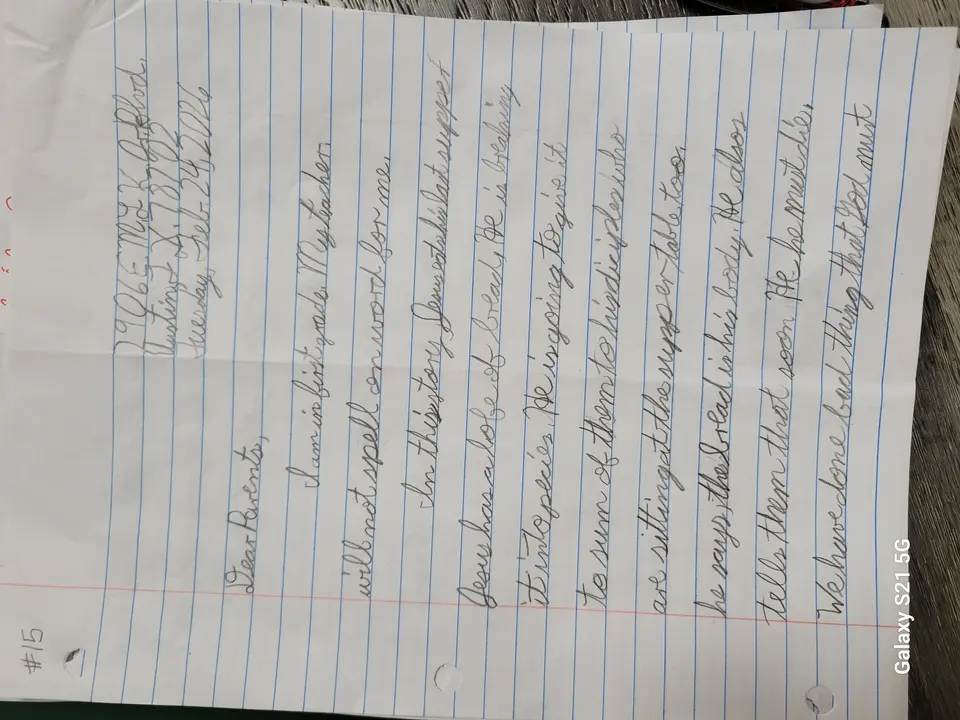 #15
1906 E MLK Jr Blvd.
Austin, 78702
Tuesday, Feb-24, 2026
Dear Parents,
I am in first grade. My teacher
will not spell on word for me.
In this story Jesus at the last supper
Jesus has a lofe of bread. He is breaking
it into pecies. He is going to give it
to sum of them to his dicipdes who
are sitting at the supper table, too.
he says, the bread is his body. He also
tells them that soon. He he must die.
We have done bad thing that God must
Galaxy S21 5G